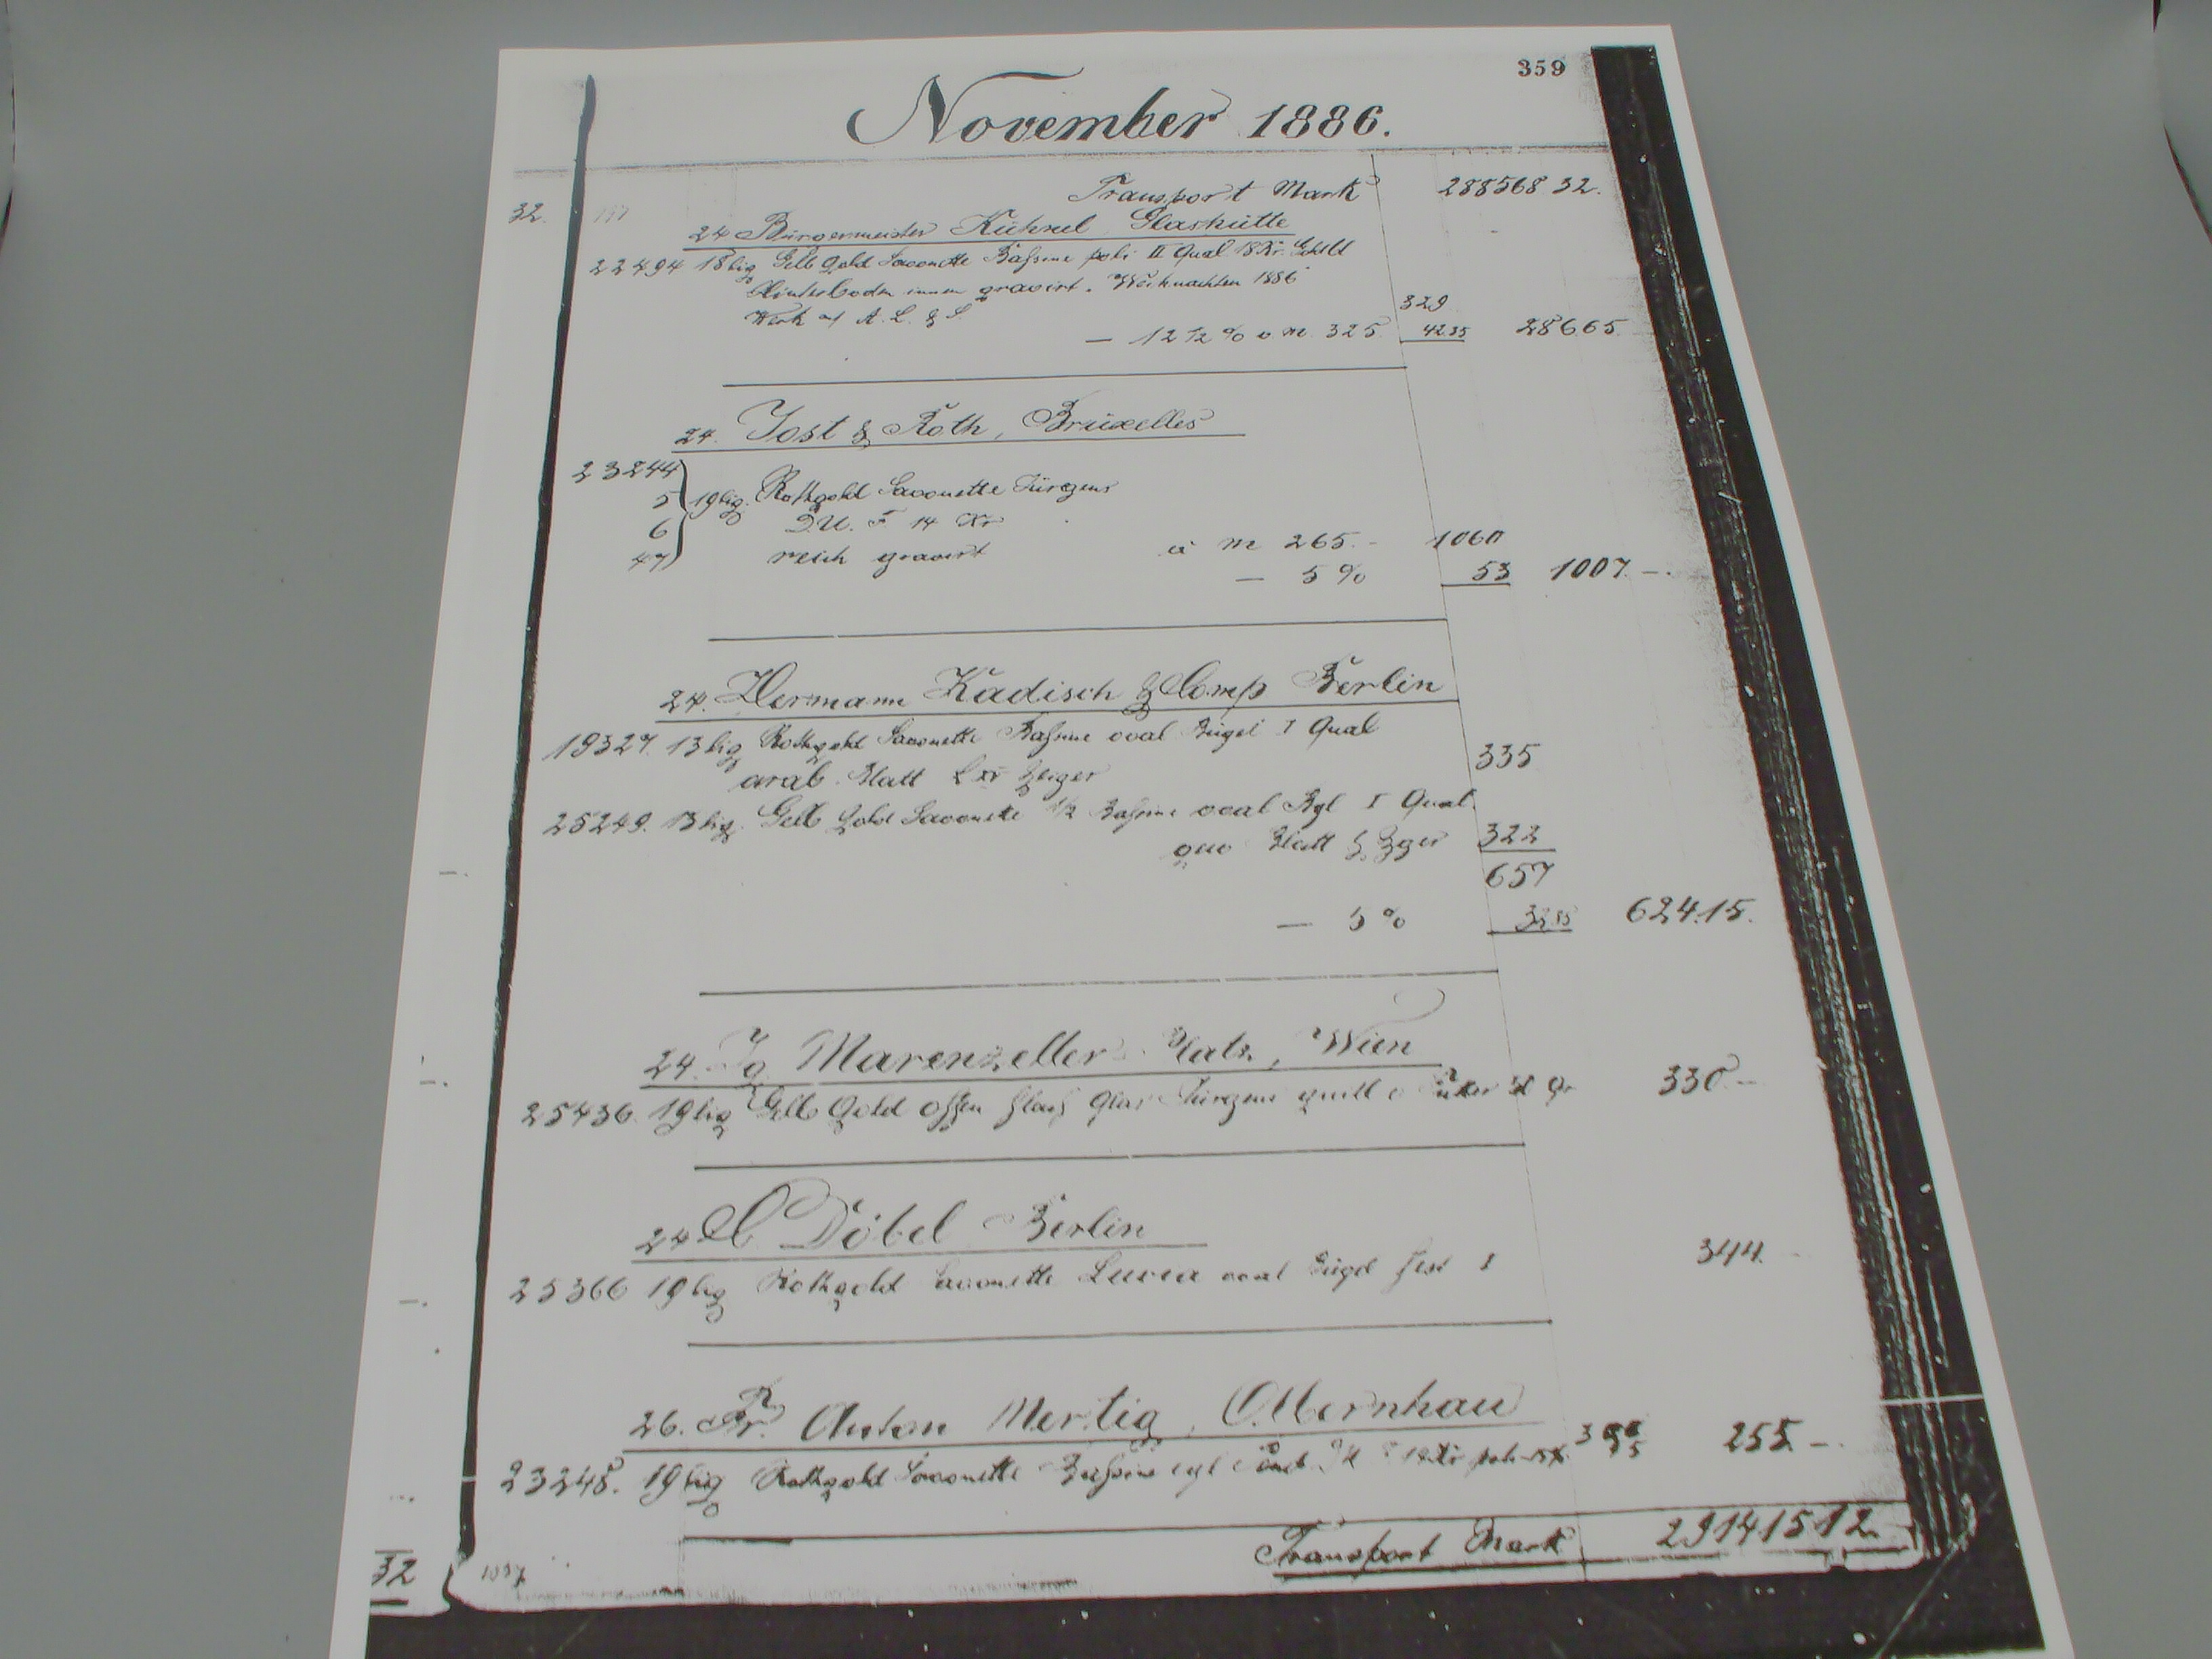 359
November 1886.
Transport Mark 288568 32.
32.
24 Bürgermeister Kühnel Glashütte
22494 18lig Gelb Gold Savonette Bassine poli II Qual 18 Kr.
Hinterboden innen gravirt. Weihnachten 1886
329
Werk A. L. & S.
— 12 1/2 % v. M. 325 42.35 286.65.
24. Jost & Roth, Bruxelles
23244
5 19lig. Rothgold Savonette Jürgens
6 D.U. F 14 Kr
47 reich gravirt à M 265.- 1060
— 5 % 53 1007.—.
24. Hermann Kadisch & Comp Berlin
19327. 13lig Rothgold Savonette Bassine oval Bügel I Qual
arab. Blatt L XV Zeiger 335
25249. 13lig. Gelb Gold Savonette 1/2 Bassine oval Bgl I Qual.
Blatt & Zger 322
657
— 5 % 32.85 624.15.
24. Ig Marenzeller Wien
25436. 19lig Gelb Gold offen flach Glas Jürgens 330.—
24 Döbel Berlin
25366 19lig Rothgold Savonette Lucia oval Bügel fest I 344.-
26. Fr. Anton Mertig, Olbernhau
23248. 19lig Rothgold Savonette Bassine 14 Kr poli 255.—
Transport Mark 291415 12
32